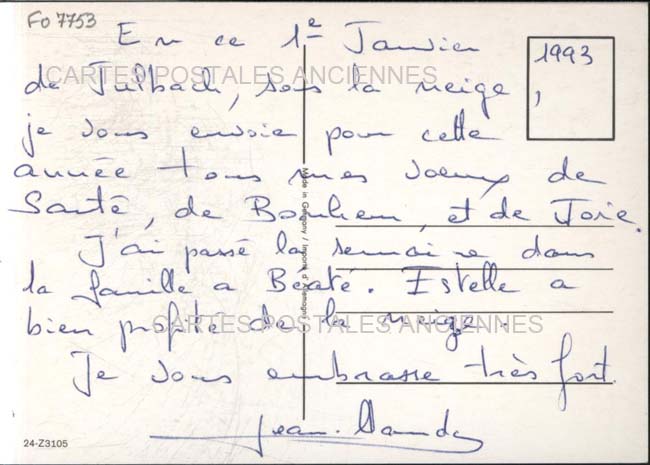 FO 7753
1993
En ce 1e Janvier
de Julbach, sous la neige,
je vous envoie pour cette
année tous mes voeux de
Santé, de Bonheur, et de Joie.
J'ai passé la semaine dans
la famille a Béaté. Estelle a
bien profité de la neige.
Je vous embrasse très fort.
Jean-Claude
CARTES POSTALES ANCIENNES
CARTES POSTALES ANCIENNES
Made in Germany / Importé d'Allemagne
24-Z3105